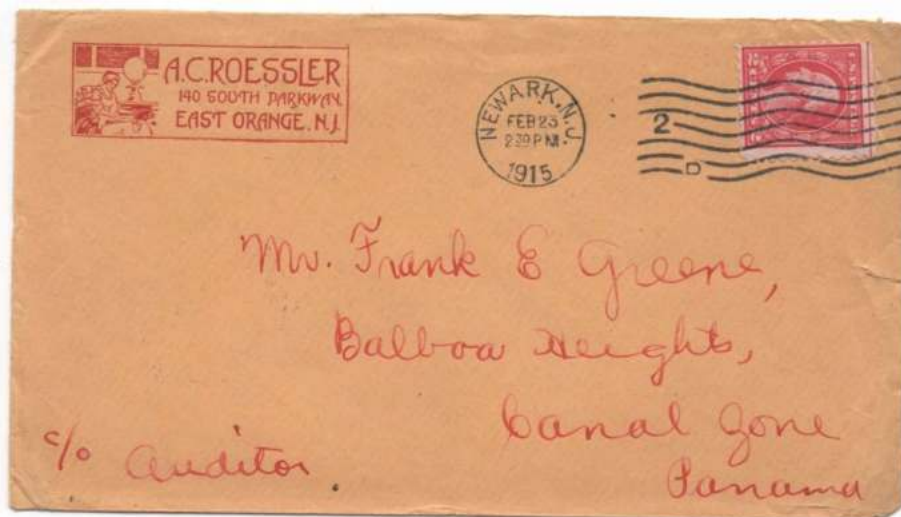 A.C. ROESSLER
140 SOUTH PARKWAY,
EAST ORANGE, N.J.
NEWARK, N.J.
FEB 23
230 PM
1915
2
D
Mr. Frank E Greene,
Balboa Heights,
Canal Zone
Panama
c/o Auditor